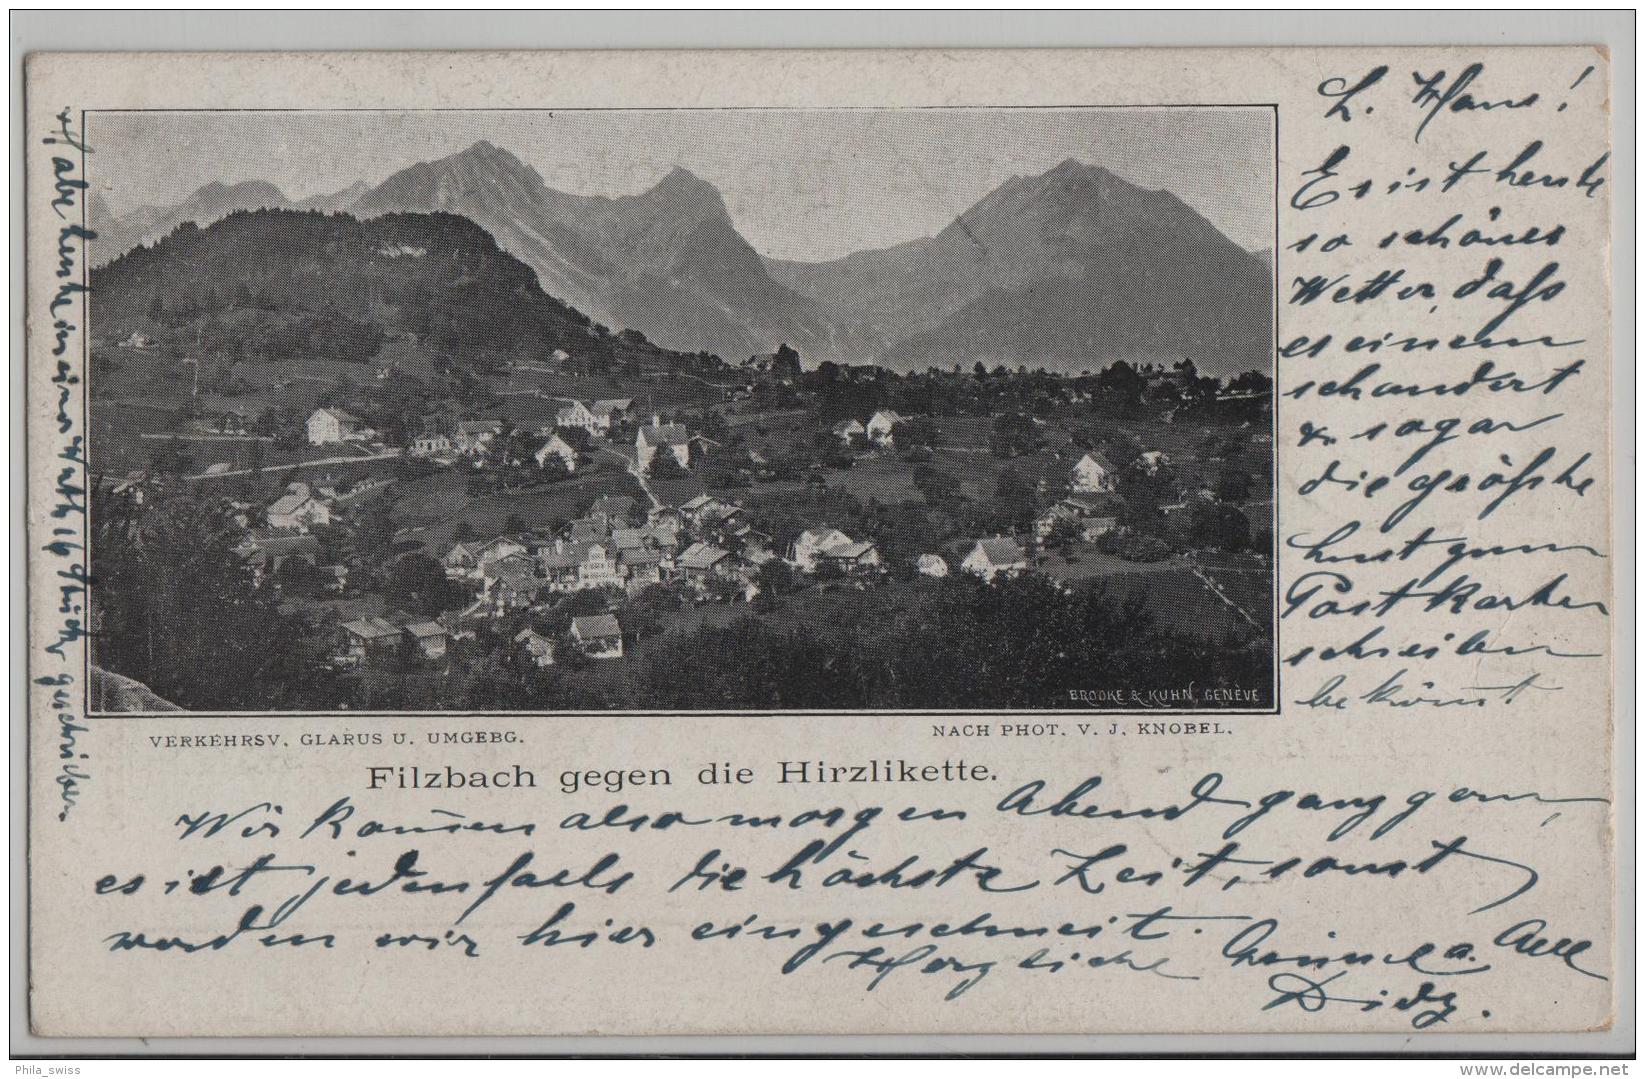 L. Hans!
Es ist heute
so schönes
Wetter, dass
es einem
schaudert
u. sogar
die grösste
Lust zum
Postkarten
schreiben
bekömmt
BROOKE & KUHN, GENÈVE
VERKEHRSV. GLARUS U. UMGEBG.
NACH PHOT. V. J. KNOBEL.
Filzbach gegen die Hirzlikette.
Wir kommen also morgen Abend ganz gern,
es ist jedenfalls die höchste Zeit, sonst
werden wir hier eingeschneit.
Herzliche Grüsse a. Alle
Habe heute in einer Wuth 16 Stück geschrieben.
Phila_swiss
www.delcampe.net